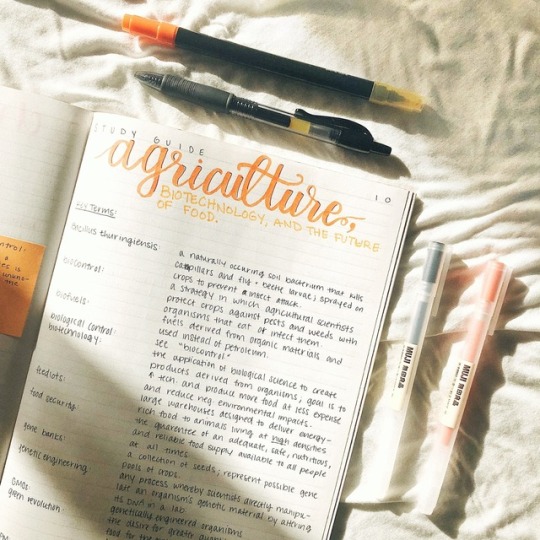 STUDY GUIDE
10
agriculture,
BIOTECHNOLOGY, AND THE FUTURE
OF FOOD.
key terms:
bacillus thuringiensis:
a naturally occuring soil bacterium that kills
catpillars and fly + beetle larvae; sprayed on
crops to prevent insect attack.
biocontrol:
a strategy in which agricultural scientists
protect crops against pests and weeds with
organisms that eat or infect them.
biofuels:
fuels derived from organic materials and
used instead of petroleum.
biological control:
see "biocontrol"
biotechnology:
the application of biological science to create
products derived from organisms; goal is to
tech. and produce more food at less expense
and reduce neg. environmental impacts.
feedlots:
large warehouses designed to deliver energy-
rich food to animals living at high densities
food security:
the guarentee of an adequate, safe, nutritious,
and reliable food supply available to all people
at all times.
gene banks:
a collection of seeds; represent possible gene
pools of crops.
genetic engineering:
any process whereby scientists directly manipu-
late an organism's genetic material by altering
its DNA in a lab
GMOs:
genetically engineered organisms
green revolution:
the desire for greater
food for the
ntrol:
MUJI 無印良品
MUJI 無印良品